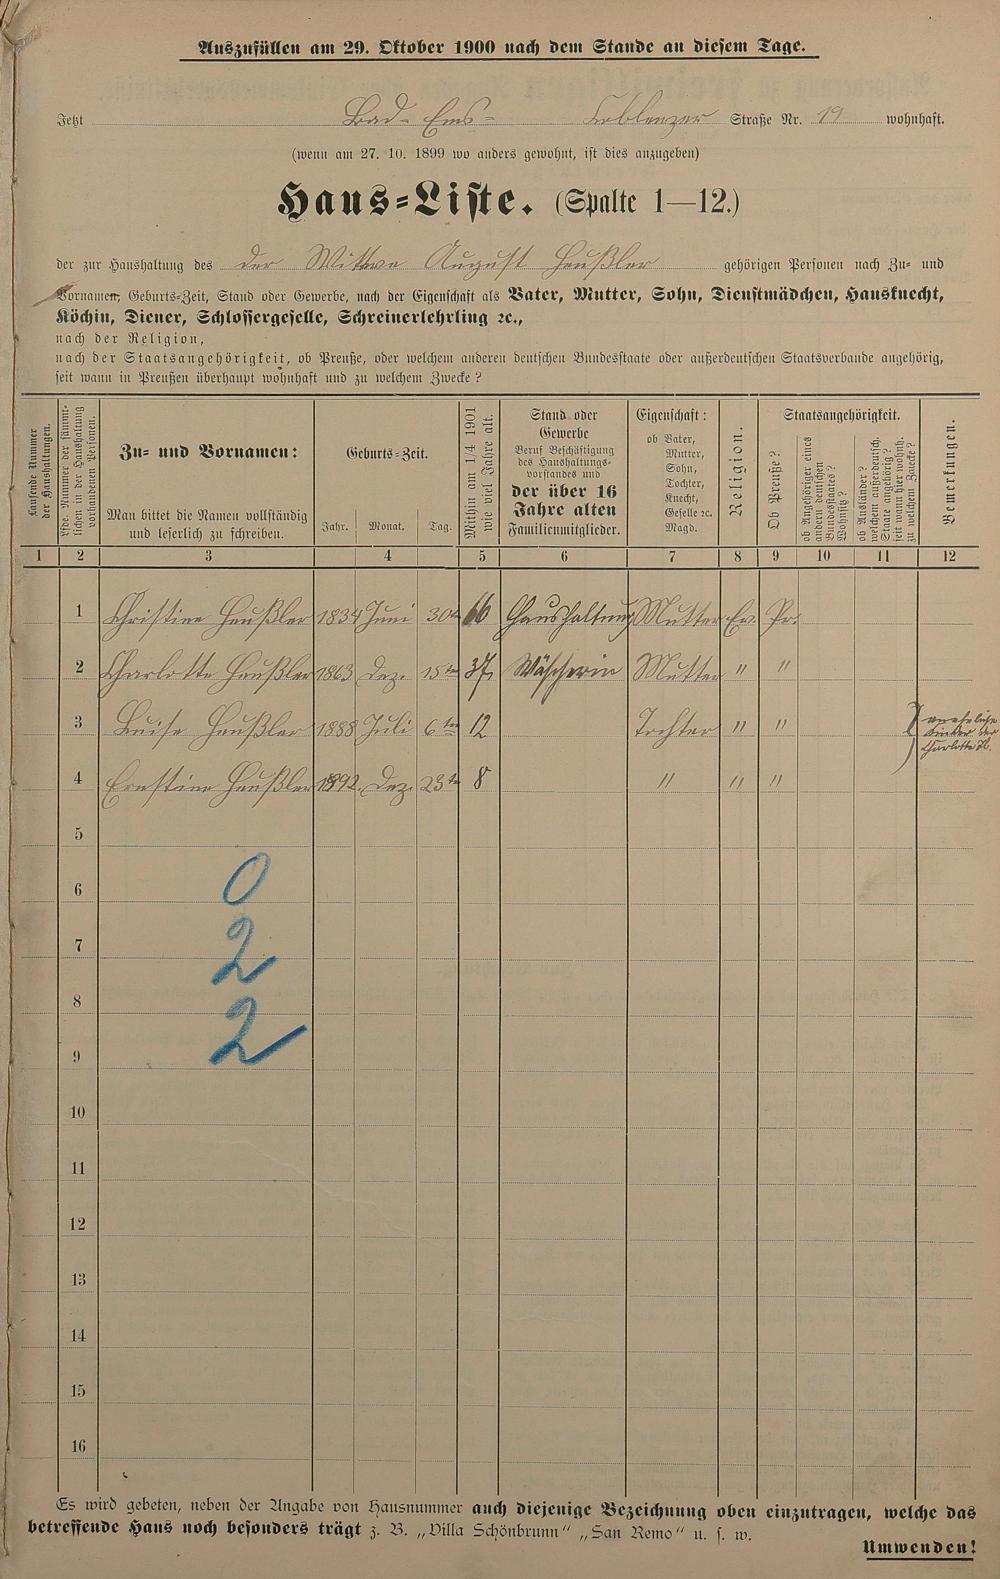 Auszufüllen am 29. Oktober 1900 nach dem Stande an diesem Tage.
Jetzt Bad-Ems- Coblenzer Straße Nr. 19 wohnhaft.
(wenn am 27. 10. 1899 wo anders gewohnt, ist dies anzugeben)
Haus-Liste. (Spalte 1—12.)
der zur Haushaltung des der Wittwe August Heußler gehörigen Personen nach Zu- und
Vornamen, Geburts-Zeit, Stand oder Gewerbe, nach der Eigenschaft als Vater, Mutter, Sohn, Dienstmädchen, Hausknecht,
Köchin, Diener, Schlossergeselle, Schreinerlehrling ꝛc.,
nach der Religion,
nach der Staatsangehörigkeit, ob Preuße, oder welchem anderen deutschen Bundesstaate oder außerdeutschen Staatsverbande angehörig,
seit wann in Preußen überhaupt wohnhaft und zu welchem Zwecke?
Laufende Nummer
der Haushaltungen.
Lfde. Nummer der sämmt-
lichen in der Haushaltung
vorhandenen Personen.
Zu- und Vornamen:
Man bittet die Namen vollständig
und leserlich zu schreiben.
Geburts-Zeit.
Jahr. Monat. Tag.
Mithin am 1/4 1901
wie viel Jahre alt.
Stand oder
Gewerbe
Beruf Beschäftigung
des Haushaltungs-
vorstandes und
der über 16
Jahre alten
Familienmitglieder.
Eigenschaft:
ob Vater,
Mutter,
Sohn,
Tochter,
Knecht,
Geselle ꝛc.
Magd.
Religion.
Staatsangehörigkeit.
Ob Preuße?
ob Angehöriger eines
andern deutschen
Bundesstaates?
Wohnsitz?
ob Ausländer?
welchem außerdeutsch.
Staate angehörig?
seit wann hier wohnh.
zu welchem Zwecke?
Bemerkungen.
1 2 3 4 5 6 7 8 9 10 11 12
1 Christine Heußler 1834 Juni 30ten 66 Haushaltung Mutter Ev. Pr.
2 Charlotte Heußler 1863 Dez. 15ten 37 Wäscherin Mutter " "
3 Luise Heußler 1888 Juli 6ten 12 Tochter " " uneheliche
Kinder der
Charlotte H.
4 Ernstine Heußler 1892. Dez. 23ten 8 " " "
5
6 0
7 2
8
9 2
10
11
12
13
14
15
16
Es wird gebeten, neben der Angabe von Hausnummer auch diejenige Bezeichnung oben einzutragen, welche das
betreffende Haus noch besonders trägt z. B. „Villa Schönbrunn“ „San Remo“ u. s. w.
Umwenden!